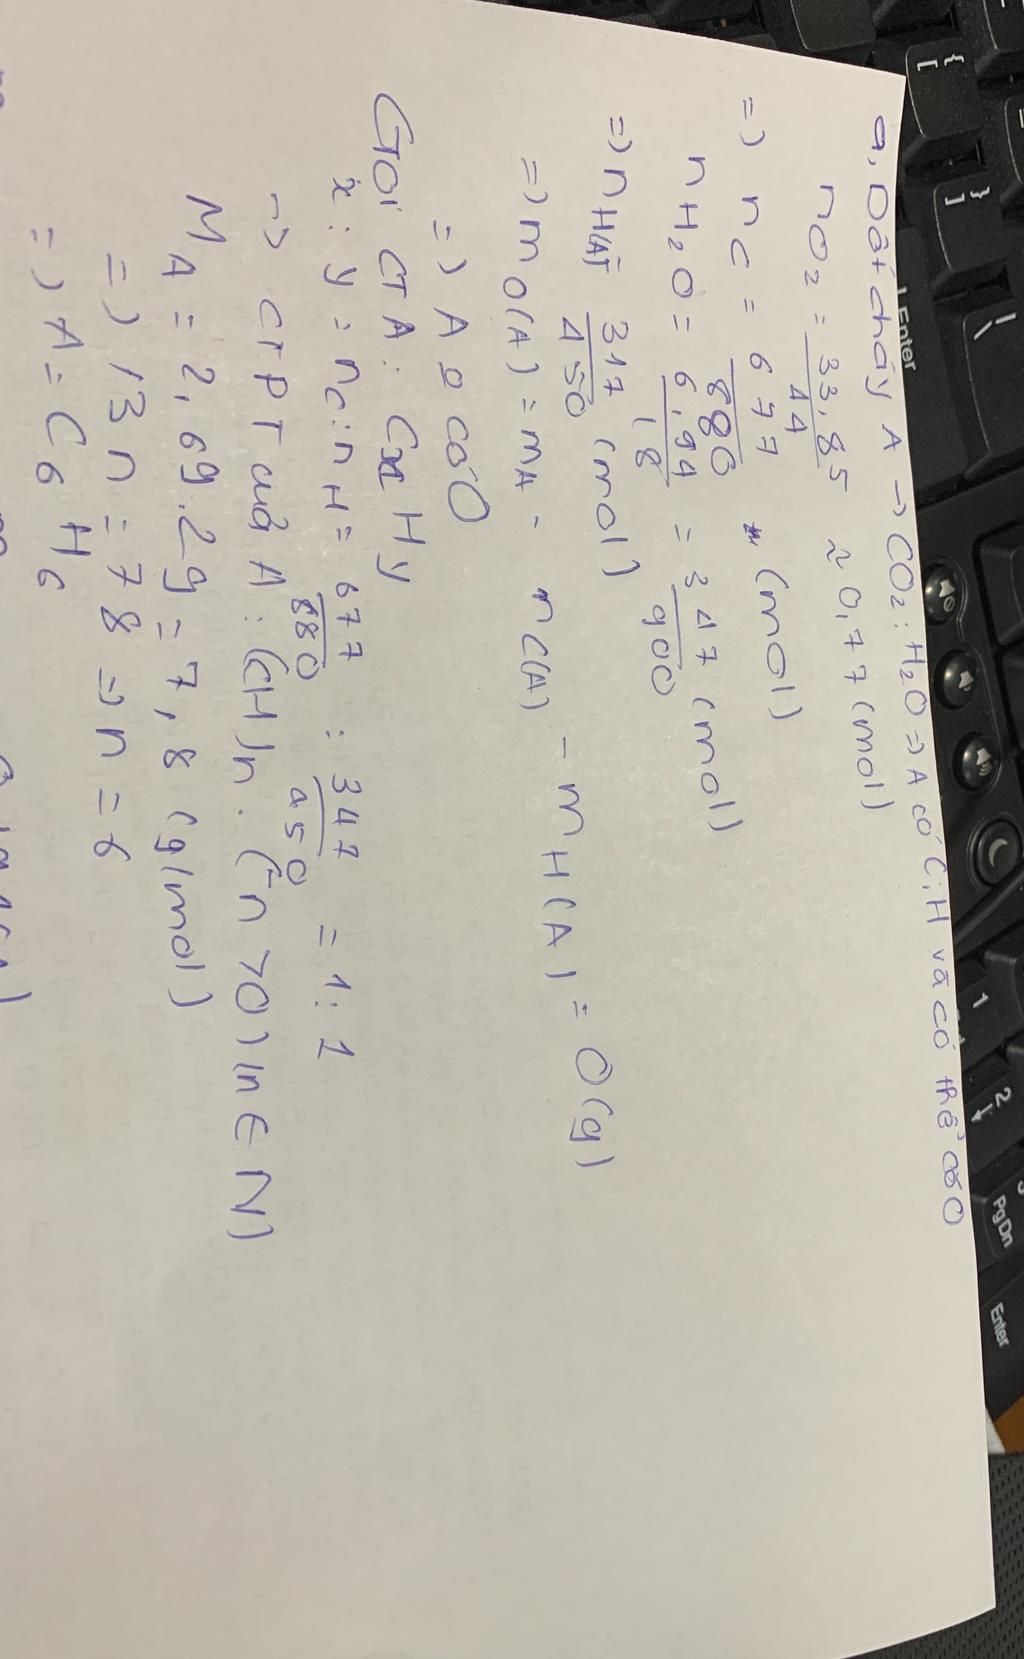 a, Đốt cháy A → CO2; H2O => A có C; H và có thể có O
nO2 = 33,85 / 44 ≈ 0,77 (mol)
=> nC = 677 / 880 (mol)
nH2O = 6,94 / 18 = 347 / 900 (mol)
=> nH(A) 317 / 450 (mol)
=> mO(A) = mA - mC(A) - mH(A) = 0(g)
=> A có O
Gọi CTA: CxHy
x : y = nC : nH = 677 / 880 : 347 / 450 = 1 : 1
-> CTPT của A: (CH)n. (n > 0) (n ∈ N)
MA = 2,69.29 = 7,8 (g/mol)
=> 13n = 78 => n = 6
=> A = C6H6
Enter
{ [
} ]
| \
1
2
PgDn
Enter